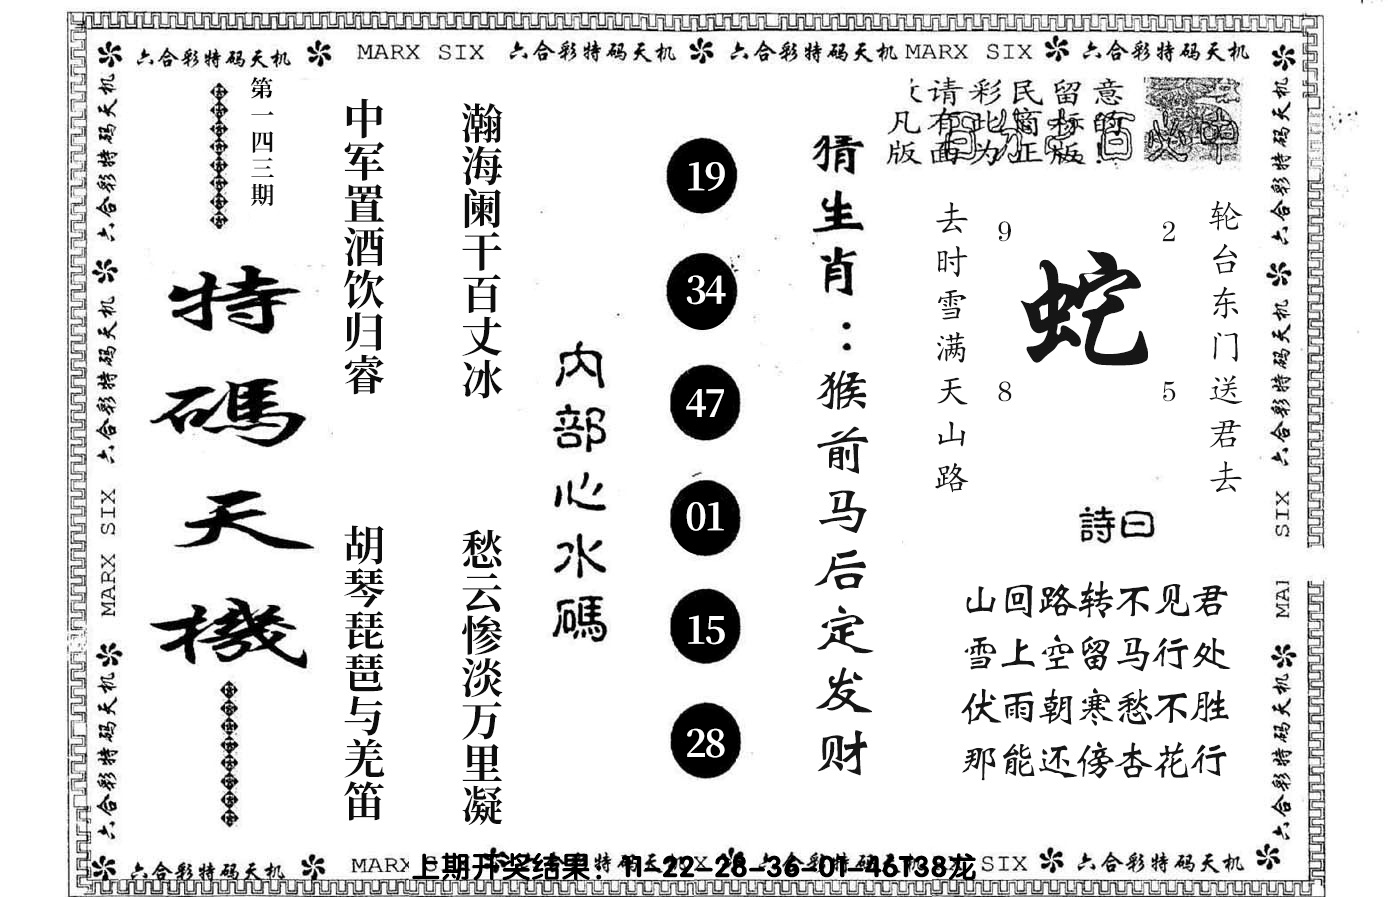 六合彩特码天机 MARX SIX 六合彩特码天机 六合彩特码天机 MARX SIX 六合彩特码天机
六合彩特码天机
六合彩特码天机
MARX SIX
六合彩特码天机
第一四三期
特碼天機
中军置酒饮归睿
胡琴琵琶与羌笛
瀚海阑干百丈冰
愁云惨淡万里凝
内部心水碼
19
34
47
01
15
28
猜生肖：猴前马后定发财
请彩民留意
凡有此商标的
版面为正版!
轮台东门送君去
去时雪满天山路
9
2
蛇
8
5
詩曰
山回路转不见君
雪上空留马行处
伏雨朝寒愁不胜
那能还傍杏花行
六合彩特码天机
六合彩特码天机
SIX
MAI
六合彩特码天机
六合彩特码天机 MARX
上期开奖结果：11-22-28-36-01-46T38龙
SIX 六合彩特码天机